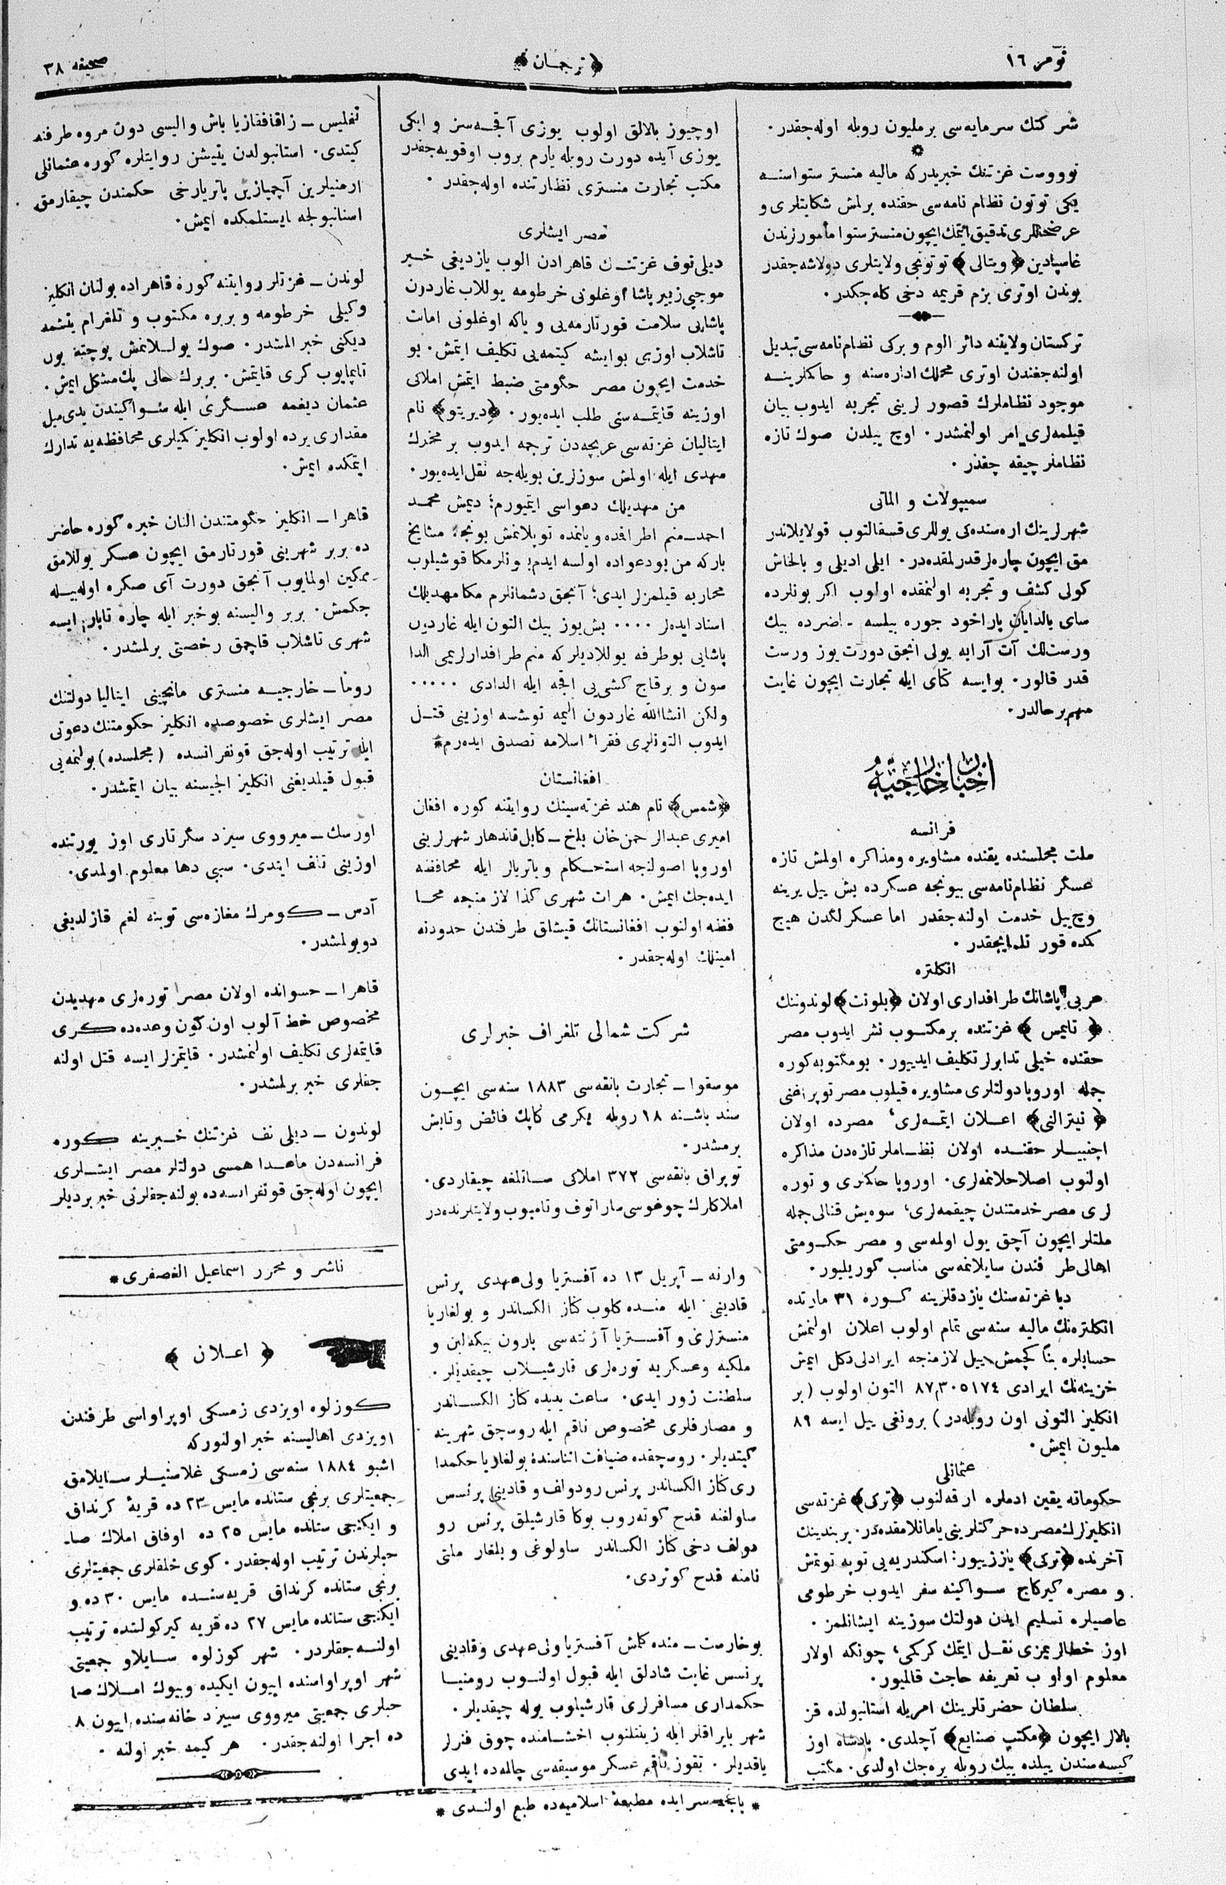 نومر ١٦
﴿ ترجمان ﴾
صحيفه ٣٨
شركتك سرمايه‌سى بر مليون روبله اوله جقدر.
نووست غزتنك خبريدركه ماليه منسترستوا سنه
يكى توتون نظام نامه‌سى حقنده برلمش شكايتلرى و
عرضحاللرى تدقيق ايتمك ايچون منسترستوا مأمورزندن
غاسپادين ﴿ويتالى﴾ توتونجى ولايتلرى دولاشه جقدر
بوندن اوترى بزم قريمه دخى كله جكدر.
تركستان ولايتنه دائر الوم و بركى نظام نامه‌سى تبديل
اولنه جغندن اوترى محلك اداره‌سنه و حاكملرينه
موجود نظاملرك قصورلرينى تجربه ايدوب بيان
قيلمه‌لرى امر اولنمشدر. اوچ ييلدن صوك تازه
نظاملر چيقه جقدر.
سيپولات و الماتى
شهرلرينك اره‌سنده‌كى يوللرى قسقالتوب قولايلاندر
مق ايچون چاره‌لر قدرلمقده‌در. ايلى اديلى و بالخاش
كولى كشف و تجربه اولنمقده اولوب اكر بونلرده
ساى يالدايان پاراخود جوره بيلسه ـ اضرده بيك
ورستلك آت آرابه يولى انجق دورت يوز ورست
قدر قالور. بوايسه كتاى ايله تجارت ايچون غايت
مهم بر حالدر.
اخبار خارجيه
فرانسه
ملت مجلسنده يقنده مشاويره ومذاكره اولمش تازه
عسكر نظام نامه‌سى بيونجه عسكرده بش ييل يرينه
وچ ييل خدمت اولنه جقدر اما عسكرلكدن هيچ
كمده قورتله‌لميجقدر.
انكلتره
عربى پاشانك طرافدارى اولان ﴿بلونت﴾ لوندوننك
﴿تايمس﴾ غزتنده بر مكتوب نشر ايدوب مصر
حقنده خيلى تدابرلر تكليف ايدييور. بو مكتوبه كوره
جمله اوروپا دولتلرى مشاويره قيلوب مصر توپراغنى
﴿نيترالنى﴾ اعلان ايتمه‌لرى، مصرده اولان
اجنبيلر حقنده اولان نظاملر تازه‌دن مذاكره
اولنوب اصلاحلانمه‌لرى. اوروپا حاكلرى و توره
لرى مصر خدمتندن چيقمه‌لرى، سوه‌يش قنالى جمله
ملتلر ايچون آچق يول اولمه‌سى و مصر حكومتى
اهالى طرفندن سايلانمه‌سى مناسب كوريليور.
ديا غزته‌سنك يازدقلرينه كوره ٣١ مارتده
انكلتره‌نك ماليه سنه‌سى تمام اولوب اعلان اولنمش
حسابلره بناً كچمش ييل لازمنجه ايرادلى دكل ايمش
خزينه‌نك ايرادى ٨٧,٣٠٥١٧٤ التون اولوب (بر
انكليز التونى اون روبله‌در) برونغى ييل ايسه ٨٩
مليون ايمش.
عثمانلى
حكوماته يقين ادملره ارقه‌لنوب ﴿تركى﴾ غزته‌سى
انكليزلرك مصرده حركتلرينى يامانلامقده‌در. بر بندينك
آخرنده ﴿تركى﴾ يازييور: اسكندريه‌يى توپه توتمش
و مصره كيركاج سواكينه سفر ايدوب خرطومى
عاصيلره تسليم ايدن دولتك سوزينه ايشانلمز.
اوز خطالريمزى نقل ايتمك كركمى، چونكه اولار
معلوم اولوب تعريفه حاجت قالميور.
سلطان حضرتلرينك امريله استانبولده قز
بالالر ايچون ﴿مكتب صنايع﴾ آچلدى. پادشاه اوز
كيسه‌سندن ييلده بيك روبله بره جك اولدى. مكتب
اوچيوز بالالق اولوب يوزى آقچه‌سز و ايكى
يوزى آيده دورت روبله يارم بروب اوقويه جقدر
مكتب تجارت منسترى نظارتنده اوله جقدر.
مصر ايشلرى
ديلى نوف غزتنك قاهرادن الوب يازديغى خبر
موجبى زبير پاشا اوغلونى خرطومه يوللاب غاردون
پاشايى سلامت قورتارمه‌يى و ياكه اوغلونى امانت
تاشلاب اوزى بوايشه كيتمه‌يى تكليف ايتمش. بو
خدمت ايچون مصر حكومتى ضبط ايتمش املاكى
اوزينه قايتمه‌سنى طلب ايده‌يور. ﴿ديريتو﴾ نام
ايتاليان غزته‌سى عربچه‌دن ترجمه ايدوب بر مخبرك
مهدى ايله اولمش سوزلرين بويله‌جه نقل ايده‌يور.
من مهديلك دعواسى ايتميورم: ديمش محمد
احمد ـ منم اطرافده و يانمده توپلانمش بونجه مشايخ
باركه من بو دعواده اولسه ايدم بونلر مكا قوشيلوب
محاربه قيلمزلر ايدى؛ آنجق دشمانلرم مكا مهديلك
اسناد ايده‌لر .... بش يوز بيك التون ايله غاردون
پاشايى بو طرفه يوللاديلر كه منم طرافدارلريمى الدا
سون و برقاج كشى‌يى اقچه ايله الدادى .....
ولكن انشاالله غاردون اليمه توشسه اوزينى قتل
ايدوب التونلرى فقراء اسلامه تصدق ايده‌رم*
افغانستان
﴿شمس﴾ نام هند غزته‌سينك روايتنه كوره افغان
اميرى عبدالرحمن خان بلخ ـ كابل قاندهار شهرلرينى
اوروپا اصولنجه استحكام و باتريالر ايله محافظه
ايده‌جك ايمش. هرات شهرى كذا لازمنجه محا
فظه اولنوب افغانستانك قيشلاق طرفندن حدودنه
امينلك اوله جقدر.
شركت شمالى تلغراف خبرلرى
موسقوا ـ تجارت بانقه‌سى ١٨٨٣ سنه‌سى ايچون
سند باشنه ١٨ روبله يكرمى كاپك فائض وتابش
برمشدر.
توپراق بانقه‌سى ٣٧٢ املاكى ساتلغه چيقاردى.
املاكلرك چوغوسى ساراتوف و تامبوب ولايتلرنده‌در
وارنه ـ آپريل ١٣ ده آفستريا ولى عهدى پرنس
قادينى ايله منده كلوب كناز الكساندر و بولغاريا
منسترلرى و آفستريا آژنته‌سى بارون بيكه‌لبن و
ملكيه وعسكريه توره‌لرى قارشيلاب چيقديلر.
سلطنت زور ايدى. ساعت يديده كناز الكساندر
و مصارفلرى مخصوص ناقم ايله روسچق شهرينه
كيتديلر. روسچقده ضيافت اثناسنده بولغاريا حكمدا
رى كناز الكساندر پرنس رودولف و قادينى پرنسس
ساولغنه قدح كوته‌روب بوكا قارشيلق پرنس رو
دولف دخى كناز الكساندر ساولوغى و بلغار ملتى
نامنه قدح كوتردى.
بوخارست ـ منده كلمش آفستريا ولى عهدى وقادينى
پرنسس غايت شادلق ايله قبول اولنوب رومنيا
حكمدارى مسافرلرى قارشيلوب يوله چيقديلر.
شهر بايراقلر ايله زينتلنوب اخشامنده چوق فنرلر
ياقديلر. تقوز ناقم عسكر موسيقه‌سى چاله‌ده ايدى
تفليس ـ زاقافقازيا باش واليسى دون مروه طرفنه
كيتدى. استانبولدن يتيشن روايتلره كوره عثمانلى
ارمنيلرين آچميازين پاتريارخى حكمندن چيقارمق
استانبولجه ايستلمكده ايمش.
لوندن ـ غزتلر روايتنه كوره قاهراده بولنان انكليز
وكيلى خرطومه و بربره مكتوب و تلغرام يتشمه
ديكنى خبر المشدر. صوك يوللانمش پوچته يول
تاپمايوب كرى قايتمش. بربرك حالى پك مشكل ايمش.
عثمان ديغمه عسكرى ايله سواكيندن يدى ميل
مقدارى يرده اولوب انكليز كميلرى محافظه‌يه تدارك
ايتمكده ايمش.
قاهرا ـ انكليز حكومتندن النان خبره كوره حاضر
ده بربر شهرينى قورتارمق ايچون عسكر يوللامق
ممكين اولمايوب آنجق دورت آى صكره اوله‌بيله
جكمش. بربر واليسنه بو خبر ايله چاره تاپار ايسه
شهرى تاشلاب قاچمق رخصتى برلمشدر.
روما ـ خارجيه منسترى مانچينى ايتاليا دولتنك
مصر ايشلرى خصوصده انكليز حكومتنك دعوتى
ايله ترتيب اوله جق قونفرانسده (مجلسده) بولنمه‌يى
قبول قيلديغنى انكليز الچيسنه بيان ايتمشدر.
اورسك ـ ميرووى سيزد سكرتارى اوز يورتنده
اوزينى تلف ايتدى. سببى دها معلوم اولمدى.
آدس ـ كومرك مغازه‌سى توبنه لغم قازلديغى
دويولمشدر.
قاهرا ـ حسوانده اولان مصر توره‌لرى مهديدن
مخصوص خط آلوب اون كون وعده‌ده كرى
قايتمه‌لرى تكليف اولنمشدر. قايتمزلر ايسه قتل اولنه
جقلرى خبر برلمشدر.
لوندون ـ ديلى نف غزتنك خبرينه كوره
فرانسه‌دن ماعدا همسى دولتلر مصر ايشلرى
ايچون اوله جق قونفرانسه‌ده بولنه جقلرنى خبر برديلر
ناشر و محرر اسماعيل الغصفرى*
﴿ اعلان ﴾
كوزلوه اويزدى زمسكى اوپراواسى طرفندن
اويزدى اهاليسنه خبر اولنور كه
اشبو ١٨٨٤ سنه‌سى زمسكى غلاسنيلر سايلامق
جمعيتلرى برنجى ستانده مايس ٢٣ ده قريهٔ كرنداق
و ايكنجى ستانده مايس ٢٥ ده اوفاق املاك صا
حبلرندن ترتيب اوله جقدر. كوى خلقلرى جمعيتلرى
برنجى ستانده كرنداق قريه‌سنده مايس ٣٠ ده و
ايكنجى ستانده مايس ٢٧ ده قريه كيركولشده ترتيب
اولنه جقلردر. شهر كوزلوه سايلاو جمعيتى
شهر اوپراواسنده اييون ايكيده وبيوك املاك صا
حبلرى جمعيتى ميرووى سييزد خانه‌سنده اييون ٨
ده اجرا اولنه جقدر. هر كيمه خبر اولنه.
* باغچه سرايده مطبعهٔ اسلاميه‌ده طبع اولندى *